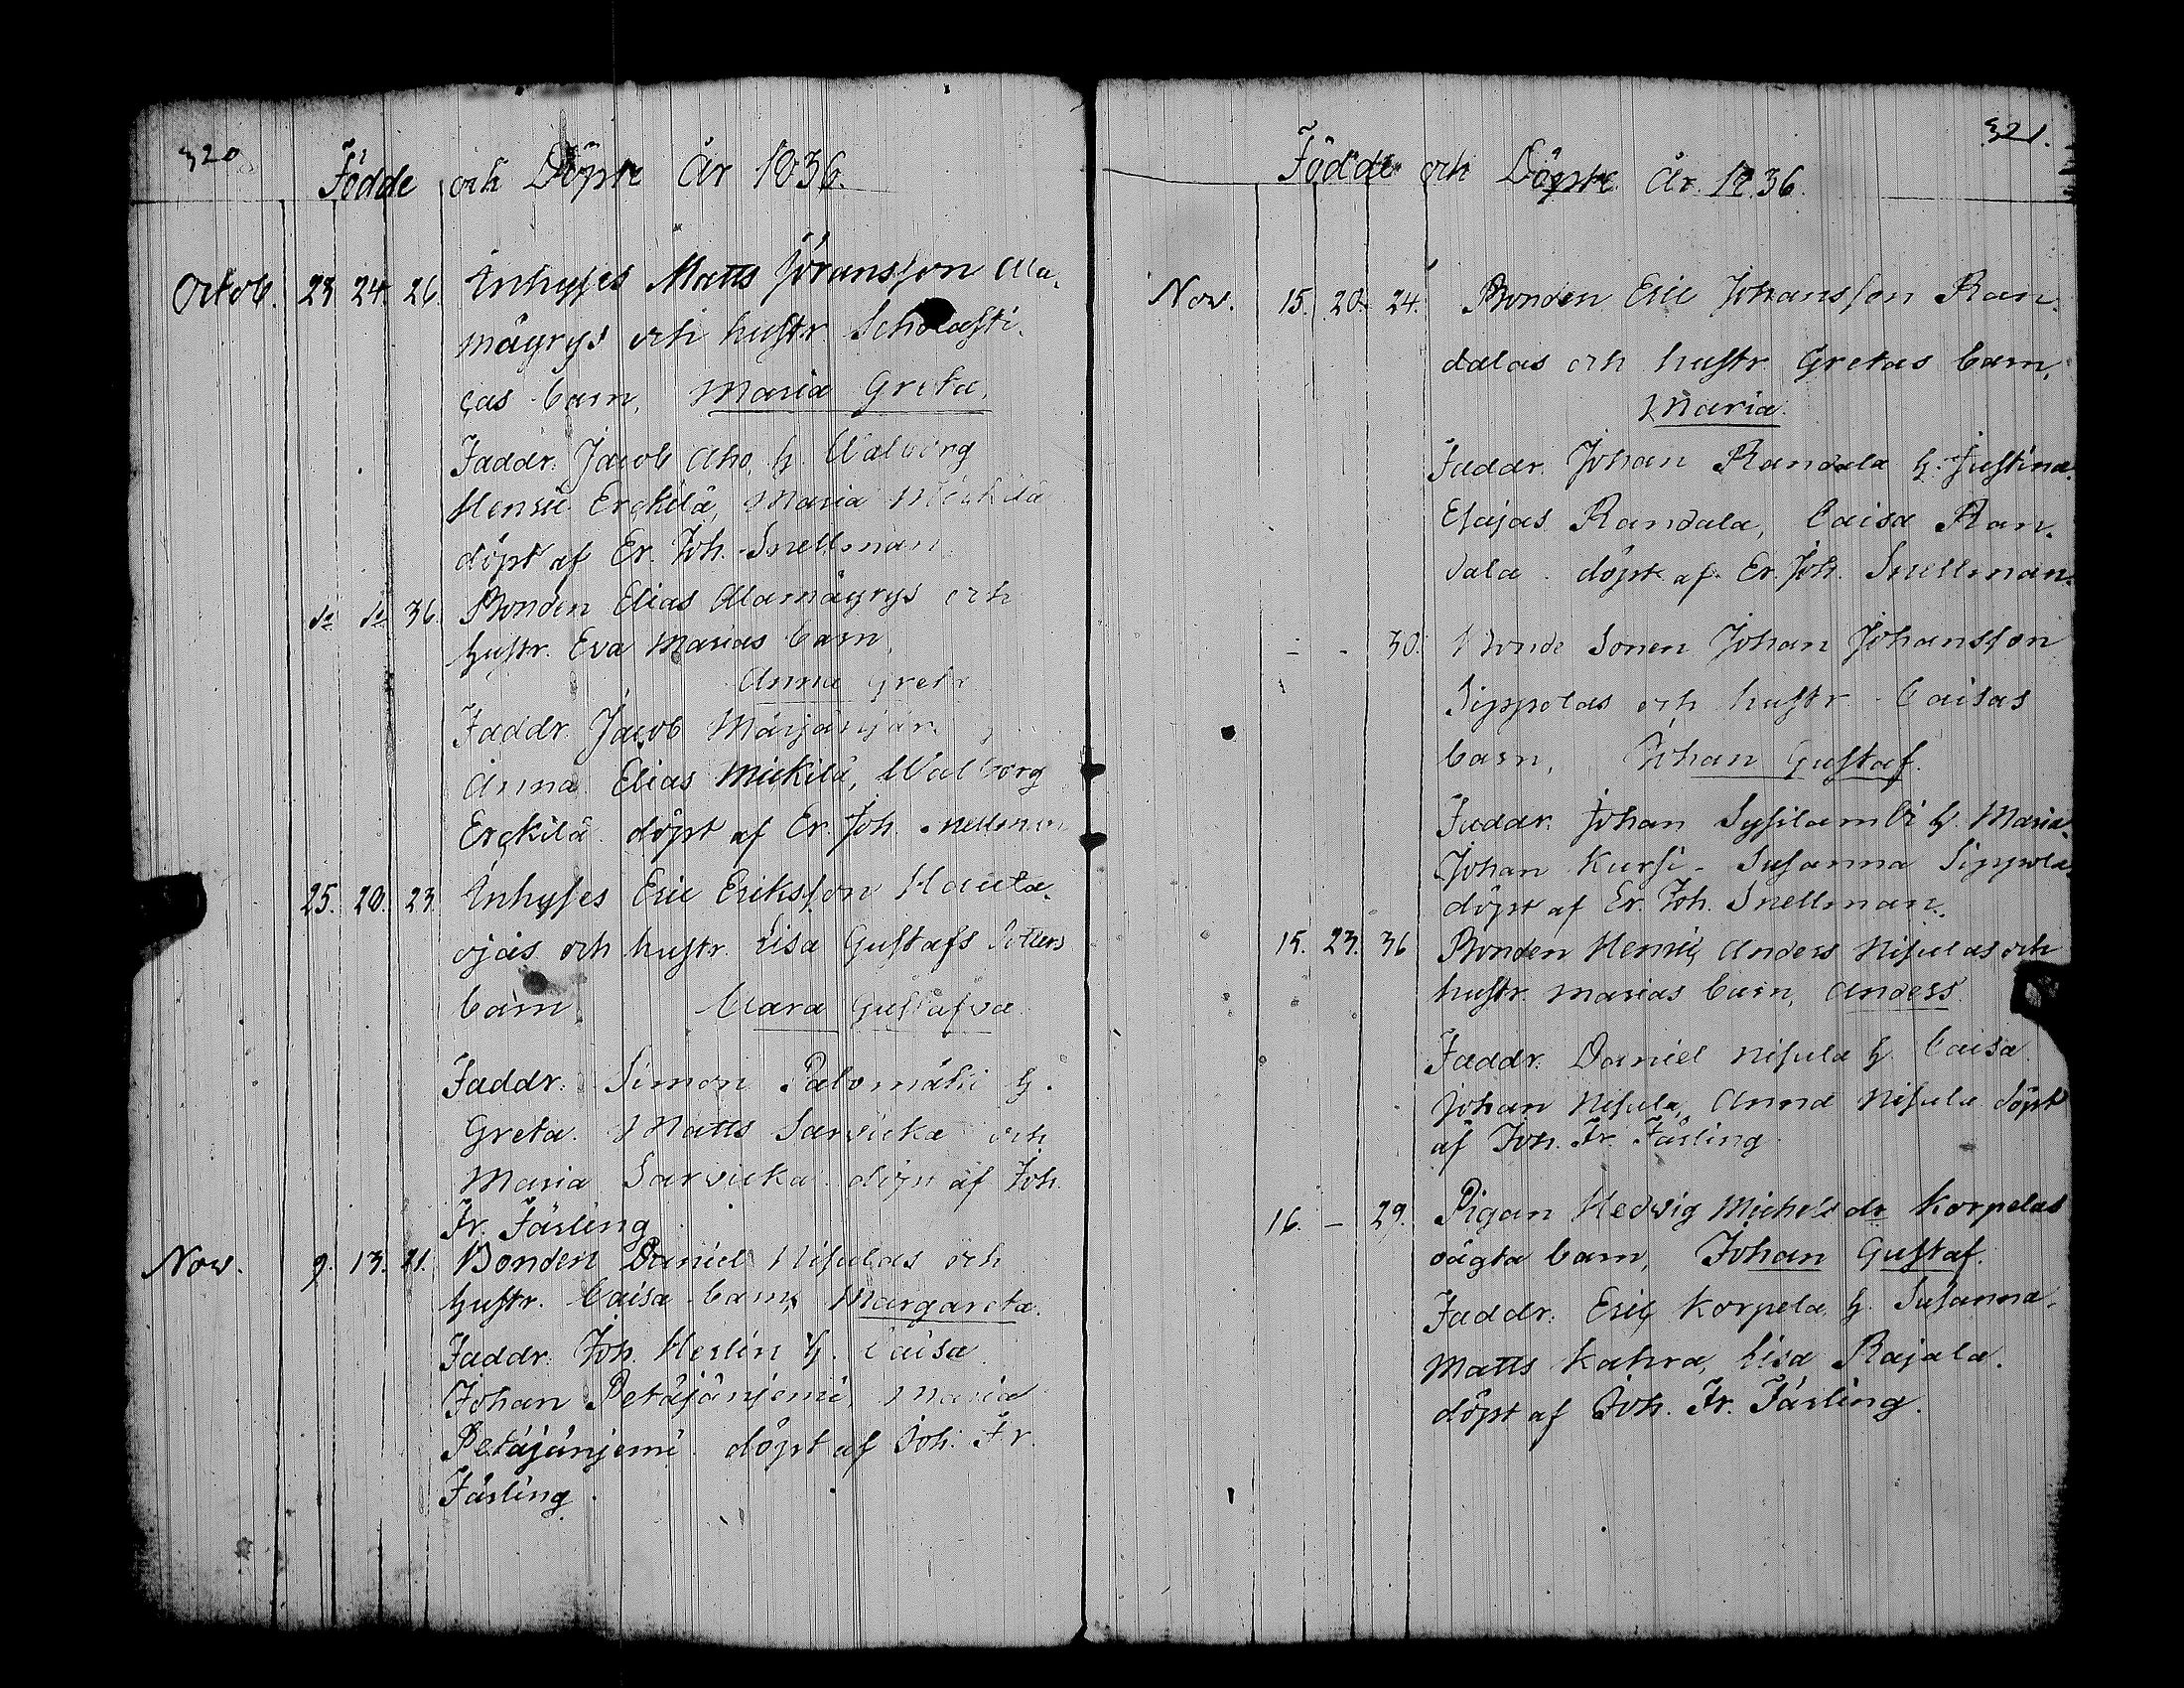 320
Födde och Döpte År 1836.
Octob. 23. 24. 26. Inhyses Matts Jöransson Ala-
mägrys och hustr. Scholasti-
cas barn, Maria Greta,
Faddr. Jacob Aho, h. Walborg
Henric Erckilä, Maria Mickilä
döpt af Er. Joh. Snellman
do do 36. Bonden Elias Alamägrys och
hustr. Eva Marias barn,
Anna Greta
Faddr. Jacob
Anna Elias Mickilä, Walborg
Erckilä döpt af Er. Joh. Snellman
25. 20. 23. Inhyses Eric Eriksson Hauta-
ojas och hustr. Lisa Gustafs dotters
barn Clara Gustafva
Faddr. Simon Palomäki h.
Greta. Matts Sarvicka och
Maria Sarvicka döpt af Joh.
Fr. Färling
Nov. 9. 13. 21. Bonden Daniel Nisulas och
hustr. Caisa barn Margareta.
Faddr. Joh. Herlin h. Caisa
Johan Petäjänjemi, Maria
Petäjänjemi döpt af Joh. Fr.
Färling.
321.
Födde och Döpte År 1836.
Nov. 15. 20. 24. Bonden Eric Johansson Ran-
dalas och hustr. Gretas barn,
Maria.
Faddr. Johan Randala h. Justina.
Esajas Randala, Caisa Ran-
dala. döpt af Er. Joh. Snellman.
- - 30. Bonde Sonen Johan Johansson
Sippolas och hustr. Caisas
barn, Johan Gustaf.
Faddr. Johan Sysilambi h. Maria.
Johan Kursi - Susanna Sippola.
döpt af Er. Joh. Snellman.
15. 23. 36 Bonden Henric Anders Nisulas och
hustr. Marias barn, Anders.
Faddr. Daniel Nisula h. Caisa.
Johan Nisula, Anna Nisula döpt
af Joh. Fr. Färling.
16. - 29. Pigan Hedvig Michels dr. Korpelas
oägta barn, Johan Gustaf.
Faddr. Eric Korpela h. Susanna.
Matts Kahra, Lisa Rajala.
döpt af Joh. Fr. Färling.